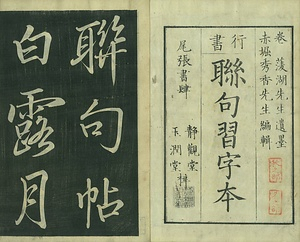 卷菱湖先生遺墨
赤堀秀香先生編輯
行書
聯句習字本
尾張書肆
靜觀堂
玉潤堂
梓
聯句帖
白露月